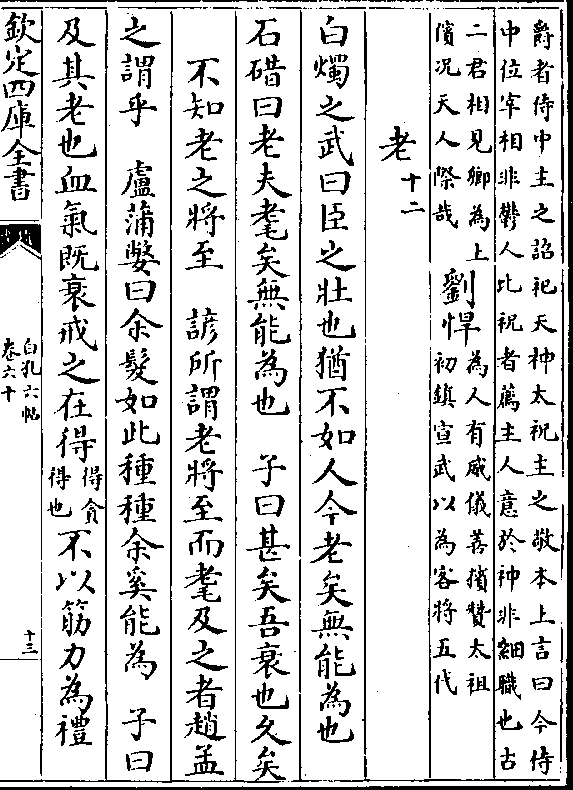 爵者侍中主之詔祀天神太祝主之敬本上言曰今侍
中位宰相非欎人比祝者薦主人意於神非細職也古
二君相見卿為上
儐况天人際哉
劉悍
為人有威儀善擯贊太祖
初鎮宣武以為客將五代
老十二
白燭之武曰臣之壯也猶不如人今老矣無能為也
石碏曰老夫耄矣無能為也　子曰甚矣吾衰也久矣
不知老之將至　諺所謂老將至而耄及之者趙孟
之謂乎　盧蒲嫳曰余髮如此種種余奚能為　子曰
及其老也血氣既衰戒之在得
得貪
得也
不以筋力為禮
欽定四庫全書
白孔六帖
卷六十
十三